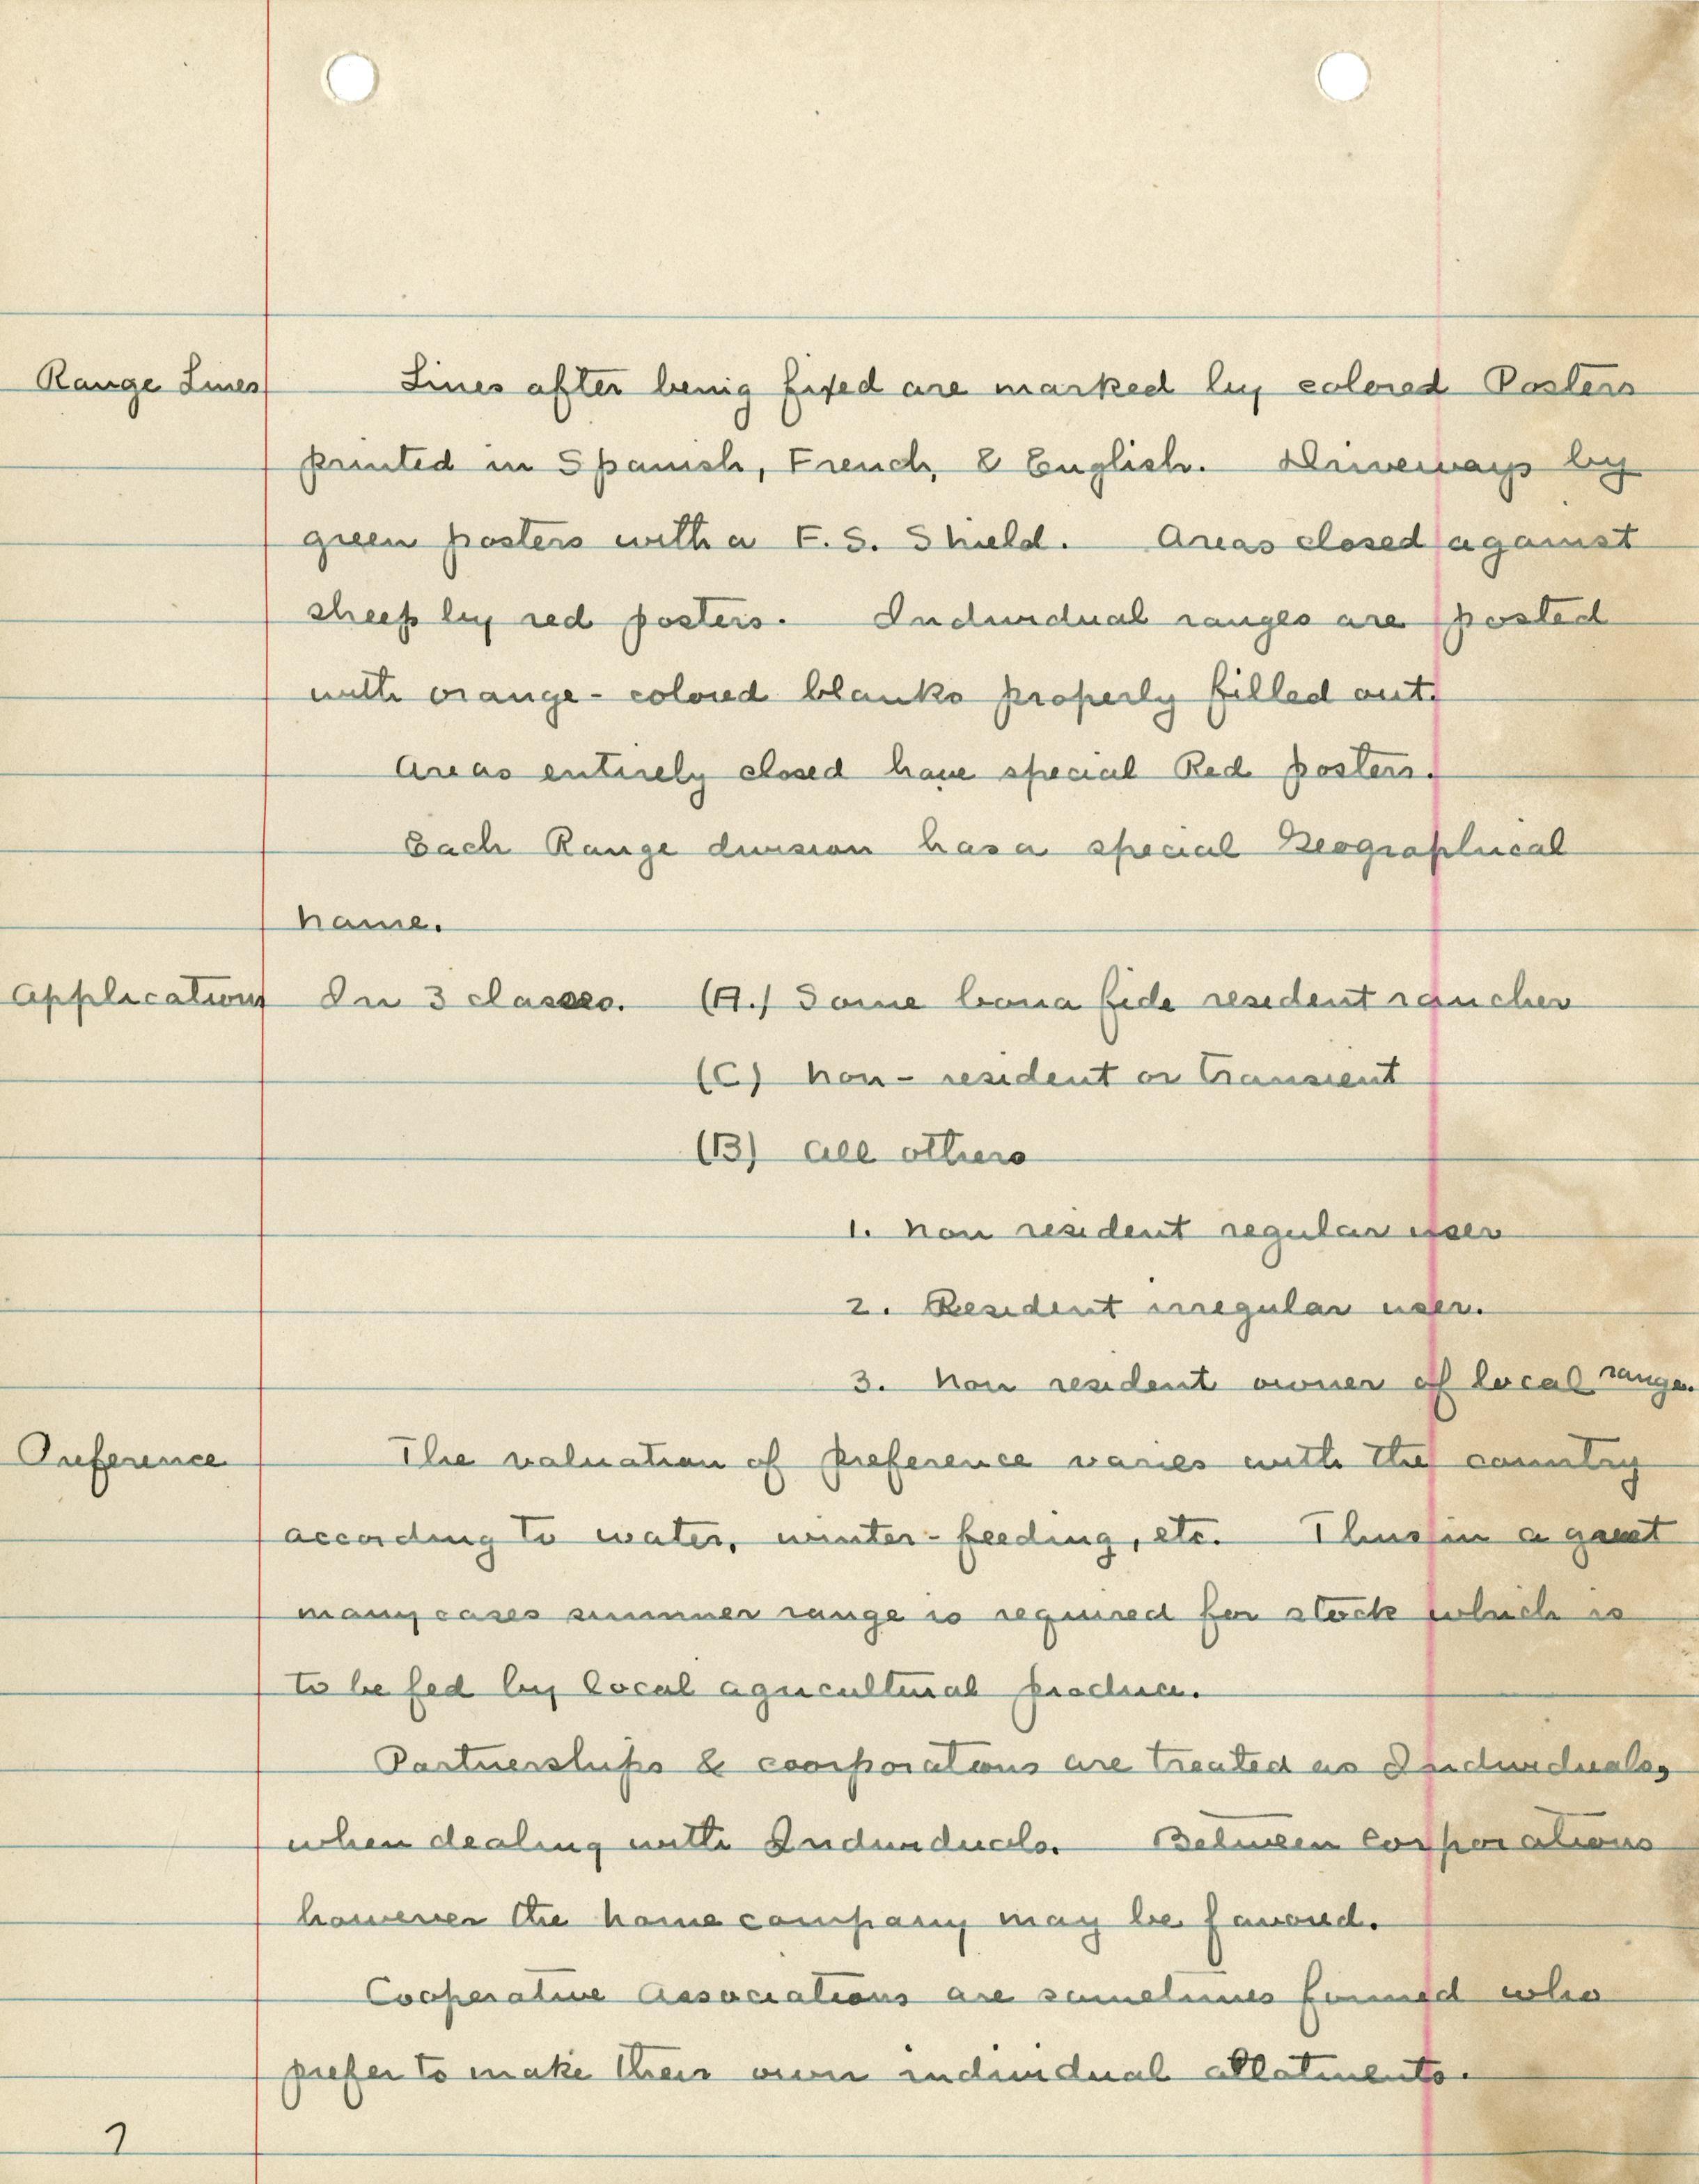 Range Lines Lines after being fixed are marked by colored Posters
printed in Spanish, French, & English. Driveways by
green posters with a F.S. Shield. Areas closed against
sheep by red posters. Individual ranges are posted
with orange-colored blanks properly filled out.
Areas entirely closed have special Red posters.
Each Range division has a special Geographical
name.
Applications In 3 classes. (A.) Some bona fide resident rancher
(C) non-resident or transient
(B) all others
1. non resident regular user
2. Resident irregular user.
3. non resident owner of local range.
Preference The valuation of preference varies with the country
according to water, winter-feeding, etc. Thus in a great
many cases summer range is required for stock which is
to be fed by local agricultural produce.
Partnerships & coorporations are treated as Individuals,
when dealing with Individuals. Between Corporations
however the home company may be favored.
Cooperative Associations are sometimes formed who
prefer to make their own individual allotments.